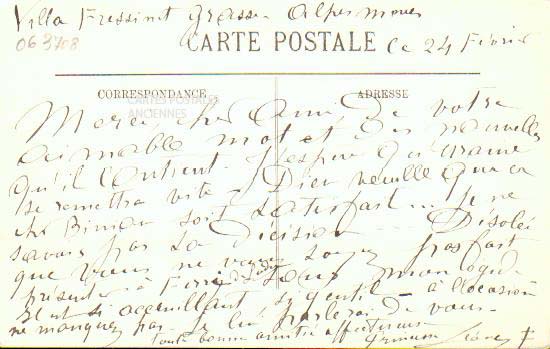 Villa Fressinet Grasse Alpes Mmes
063708
CARTE POSTALE
Ce 24 Février
CORRESPONDANCE
ADRESSE
CARTES POSTALES
ANCIENNES
Merci cher ami, de votre
aimable mot et des nouvelles
qu'il contient. J'espère
se remettra vite. Dieu veuille que ce
cher soit satisfait... Je ne
savais pas sa décision. Désolée
que vous ne soyez pas fait
présenter à mon
Il est si accueillant si gentil - à l'occasion
ne manquez pas. Je lui parlerai de vous.
toute bonne amitié affectueuse